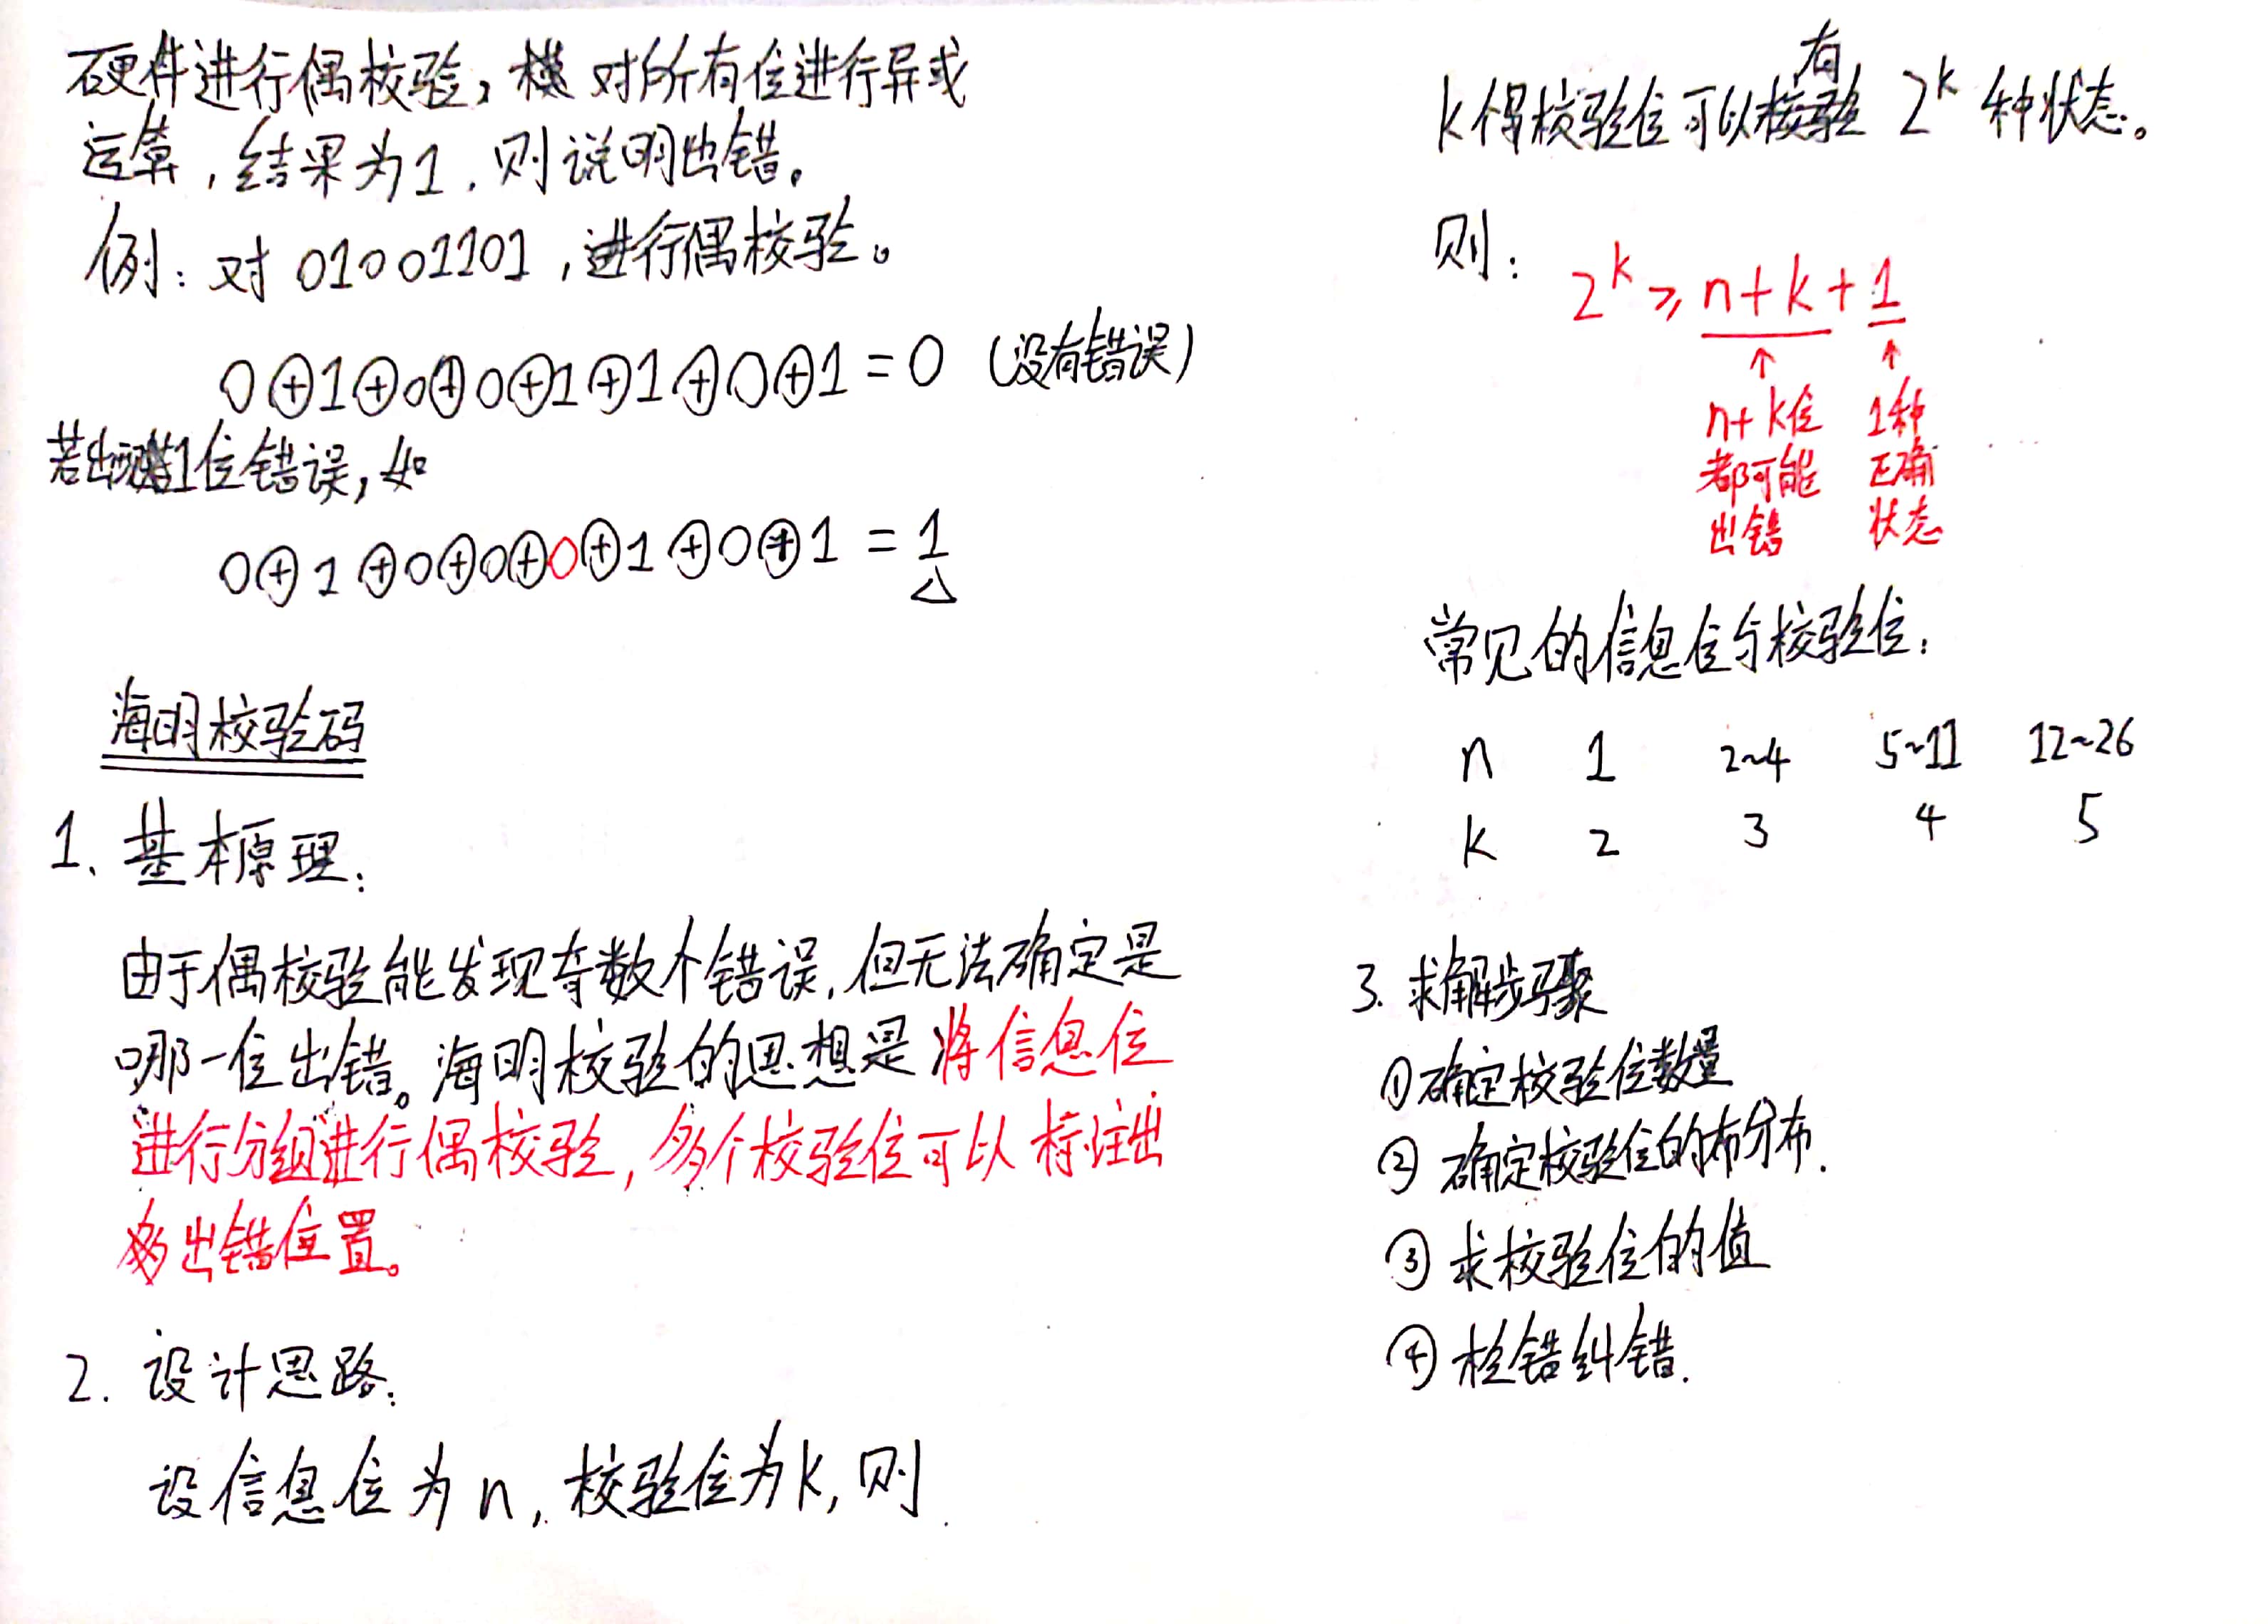 硬件进行偶校验，对所有位进行异或
运算，结果为1，则说明出错。
例：对 01001101，进行偶校验。
0⊕1⊕0⊕0⊕1⊕1⊕0⊕1=0（没有错误）
若出现1位错误，如
0⊕1⊕0⊕0⊕0⊕1⊕0⊕1=1
海明校验码
1、基本原理：
由于偶校验能发现奇数个错误，但无法确定是
哪一位出错。海明校验的思想是将信息位
进行分组进行偶校验，多个校验位可以标注出
出错位置。
2. 设计思路：
设信息位为n，校验位为k，则
k个校验位可以有 2ᵏ 种状态。
则：2ᵏ ≥ n+k+1
↑ ↑
n+k位 1种
都可能 正确
出错 状态
常见的信息位与校验位：
n 1 2~4 5~11 12~26
k 2 3 4 5
3. 求解步骤
① 确定校验位数量
② 确定校验位的分布.
③ 求校验位的值
④ 检错纠错.